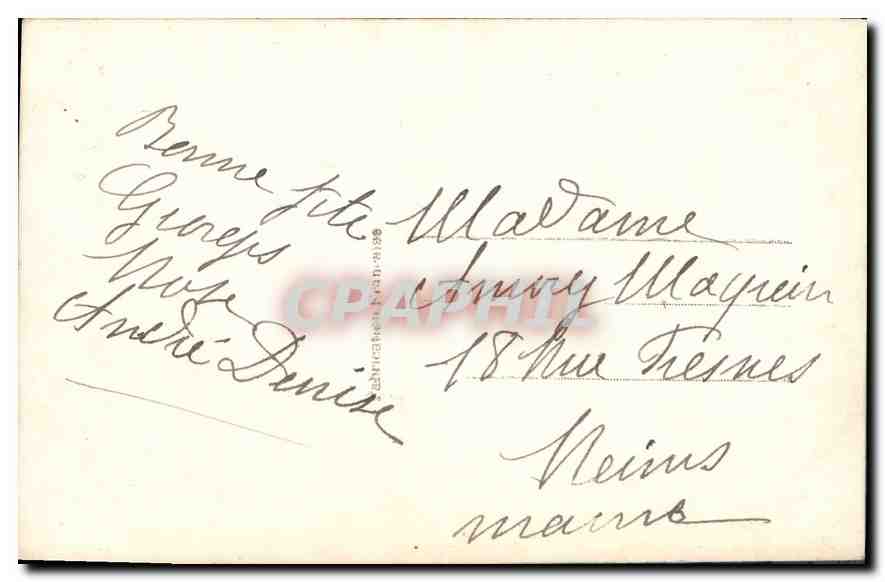 Bonne fête
Georges
Rose
André Denise
Fabrication Française
Madame
Magrein
18 Rue Fresnes
Reims
marne
CPAPHIL